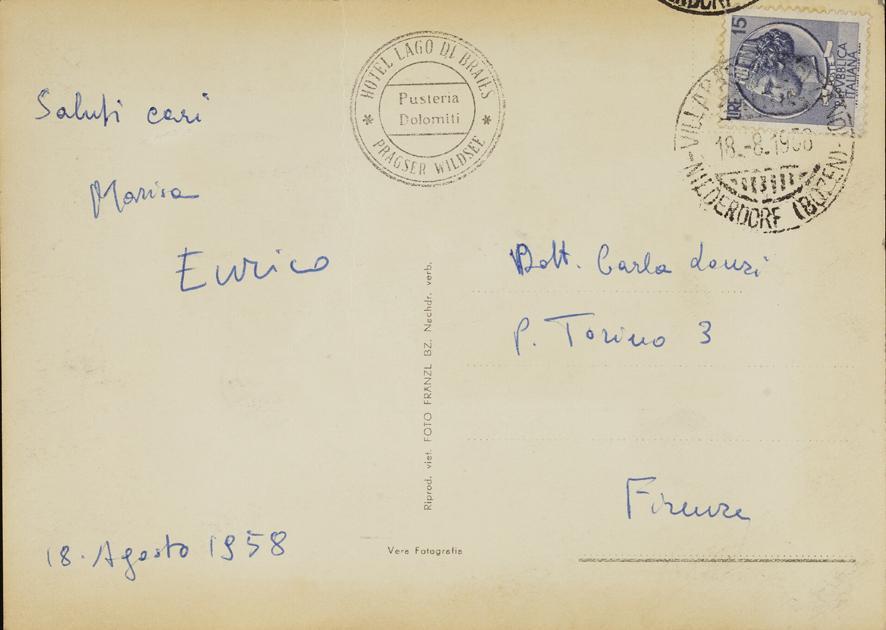 Saluti cari
Marisa
Enrico
18. Agosto 1958
HOTEL LAGO DI BRAIES
Pusteria
Dolomiti
* PRAGSER WILDSEE *
Riprod. viet. FOTO FRANZL BZ. Nachdr. verb.
Vera Fotografia
LIRE 15
REPUBBLICA
ITALIANA
18.-8.1958
NIEDERDORF (BOZEN)
Dott. Carla Lonzi
P. Torino 3
Firenze